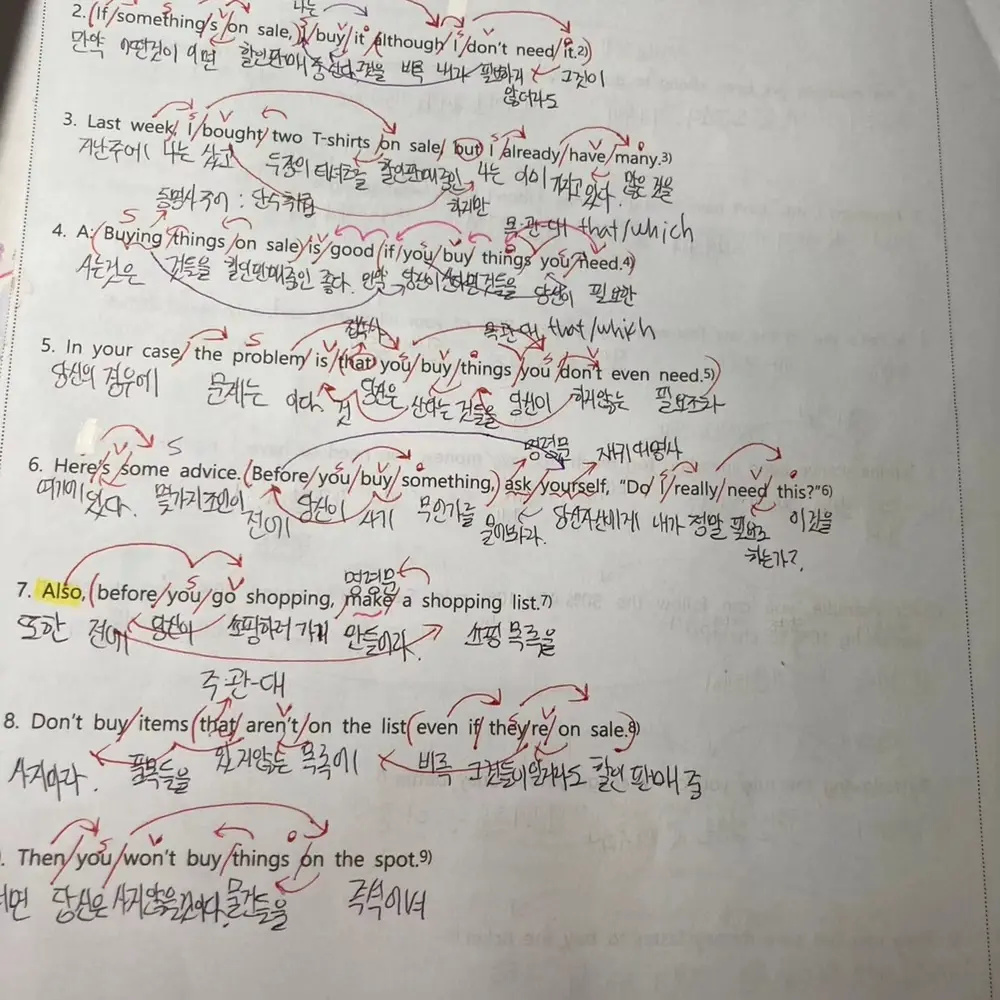 나는
2. (If something's on sale,) I buy it although I don't need it.2)
만약 어떤것이 이면 할인판매 중 산다 그것을 비록 내가 필요하지 그것이
않더라도
3. Last week, I bought two T-shirts on sale, but I already have many.3)
지난주에 나는 샀고 두장의 티셔츠를 할인판매중인 나는 이미 가지고 있다. 많은 것을
동명사 주어 : 단수취급 하지만
4. A: Buying things on sale is good if you buy things you need.4)
목·관·대 that/which
사는것은 것들을 할인판매중인 좋다. 만약 당신이 산다면 것들을 당신이 필요한
접속사 목관대 that/which
5. In your case, the problem is that you buy things you don't even need.5)
당신의 경우에 문제는 이다. 것 당신은 산다는 것들을 당신이 하지않는 필요조차
명령문 재귀대명사
6. Here's some advice. (Before you buy something,) ask yourself, "Do I really need this?"6)
여기에 있다. 몇가지조언이 전에 당신이 사기 무언가를 물어봐라. 당신자신에게 내가 정말 필요로 이것을
하는가?
명령문
7. Also, (before you go shopping, make a shopping list.7)
또한 전에 당신이 쇼핑하러 가기 만들어라. 쇼핑 목록을
주·관·대
8. Don't buy items (that aren't on the list (even if they're on sale.8)
사지마라. 품목들을 있지않는 목록에 비록 그것들이일지라도 할인 판매 중
. Then you won't buy things on the spot.9)
러면 당신은 사지않을것이다. 물건들을 즉석에서